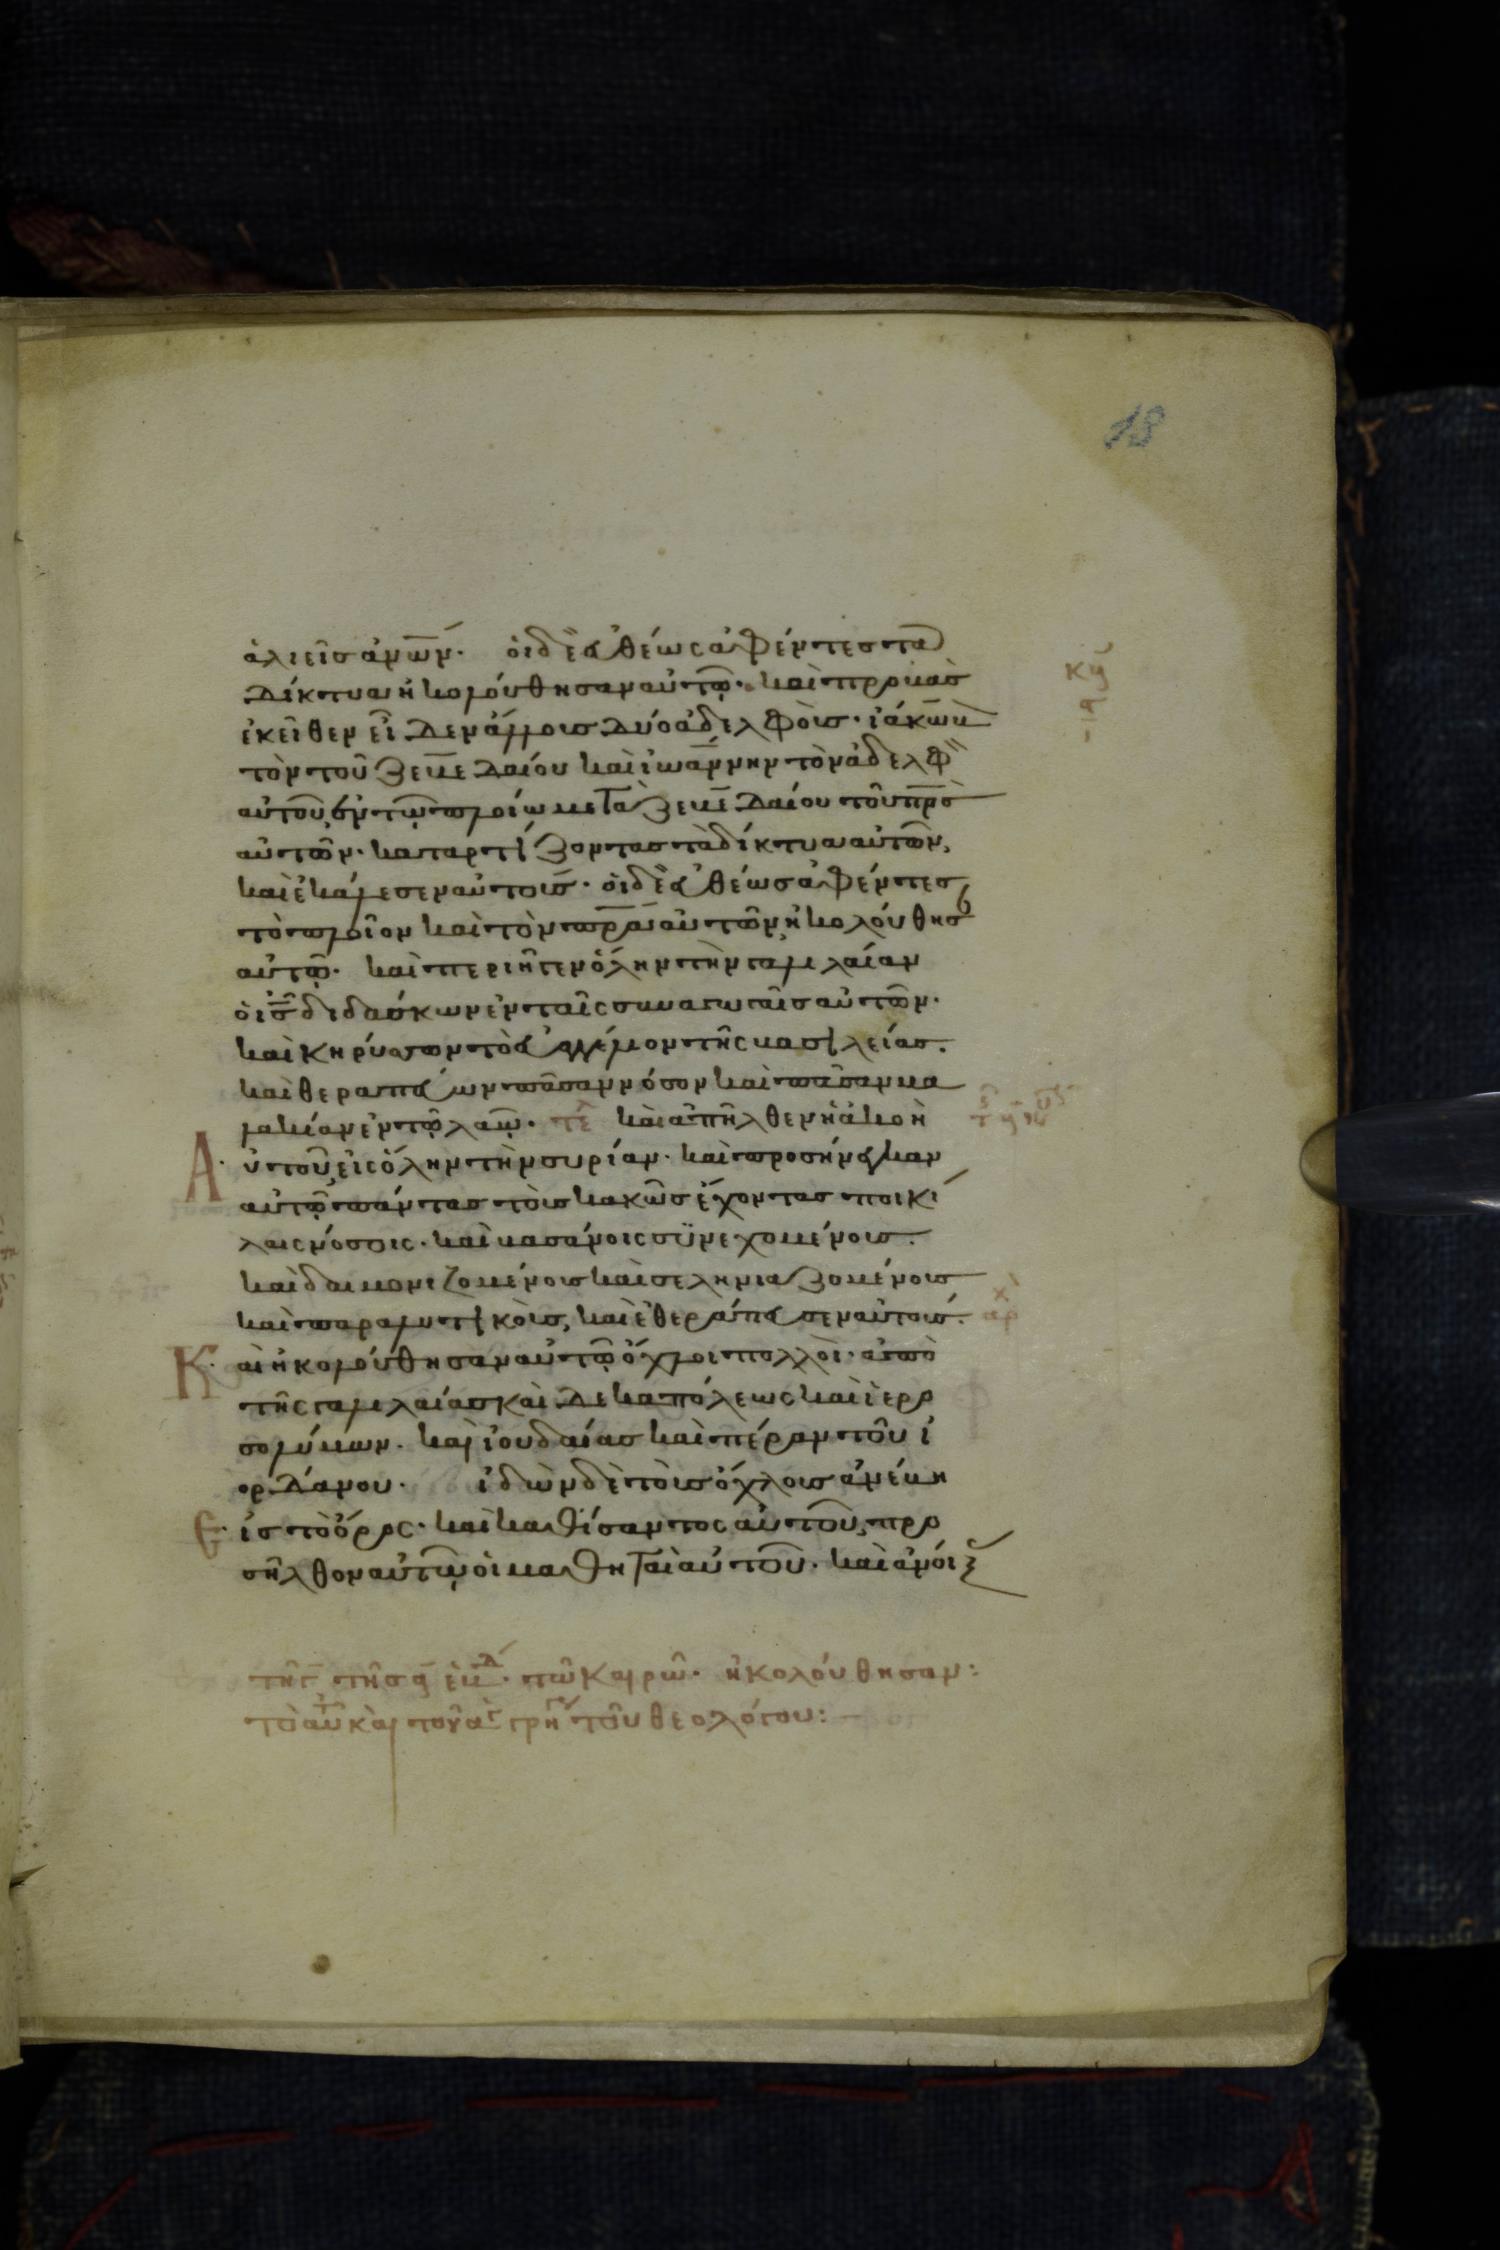 18
ἁλιεῖς ἀν̅ω̅ν· οἱ δὲ εὐθέως ἀφέντες τὰ
δίκτυα ἠκολούθησαν αὐτῷ· καὶ προβὰς
ἐκεῖθεν εἶδεν ἄλλους δύο ἀδελφούς· ἰάκωβ
τὸν τοῦ ζεβεδαίου καὶ ἰωάννην τὸν ἀδελφ
αὐτοῦ, ἐν τῷ πλοίω μετὰ ζεβεδαίου τοῦ π̅ρ̅ς
αὐτῶν· καταρτίζοντας τὰ δίκτυα αὐτῶν,
καὶ ἐκάλεσεν αὐτούς· οἱ δὲ εὐθέως ἀφέντες
τὸ πλοῖον καὶ τὸν π̅ρ̅α̅ αὐτῶν, ἠκολούθησ
αὐτῷ· καὶ περιῆγεν ὅλην τὴν γαλιλαίαν
ὁ ι̅ς̅ διδάσκων ἐν ταῖς συναγωγαῖς αὐτῶν·
καὶ κηρύσσων τὸ εὐαγγέλιον τῆς βασιλείας·
καὶ θεραπεύων πᾶσαν νόσον καὶ πᾶσαν μα
λακίαν ἐν τῷ λαῷ· τέ καὶ ἀπῆλθεν ἡ ἀκοὴ
Α ὐτοῦ, εἰς ὅλην τὴν συρίαν· καὶ προσήνεγκαν
αὐτῷ πάντας τοὺς κακῶς ἔχοντας ποικί
λαις νόσοις· καὶ βασάνοις συνεχομένους·
καὶ δαιμονιζομένους καὶ σεληνιαζομένους
καὶ παραλυτικούς, καὶ ἐθεράπευσεν αὐτούς·
Κ αὶ ἠκολούθησαν αὐτῷ ὄχλοι πολλοὶ· ἀπὸ
τῆς γαλιλαίας καὶ δεκαπόλεως καὶ ἱερο
σολύμων· καὶ ἰουδαίας καὶ πέραν τοῦ ἰ
ορδάνου· ἰδὼν δὲ τοὺς ὄχλους ἀνέβη
Ε ἰς τὸ ὄρος· καὶ καθίσαντος αὐτοῦ, προ
σῆλθον αὐτῷ οἱ μαθηταὶ αὐτοῦ· καὶ ἀνοίξ
ἠκολούθησαν:
τοῦ θεολόγου: